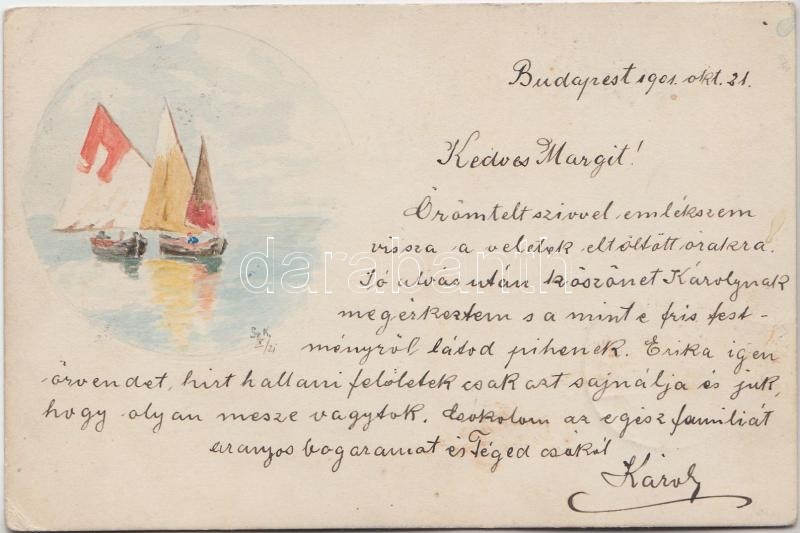 Budapest 1901. okt. 21.
Kedves Margit!
Örömtelt szivvel emlékszem
vissza a veletek eltöltött órákra.
Jó alvás után köszönet Károlynak
megérkeztem s a mint e fris fest-
ményről látod pihenek. Erika igen
örvendet, hirt hallani felőletek csak azt sajnálja és juk,
hogy olyan messze vagytok. Csokolom az egész familiát
aranyos bogaramat és Téged csókól
Károly
X/21
darabanth